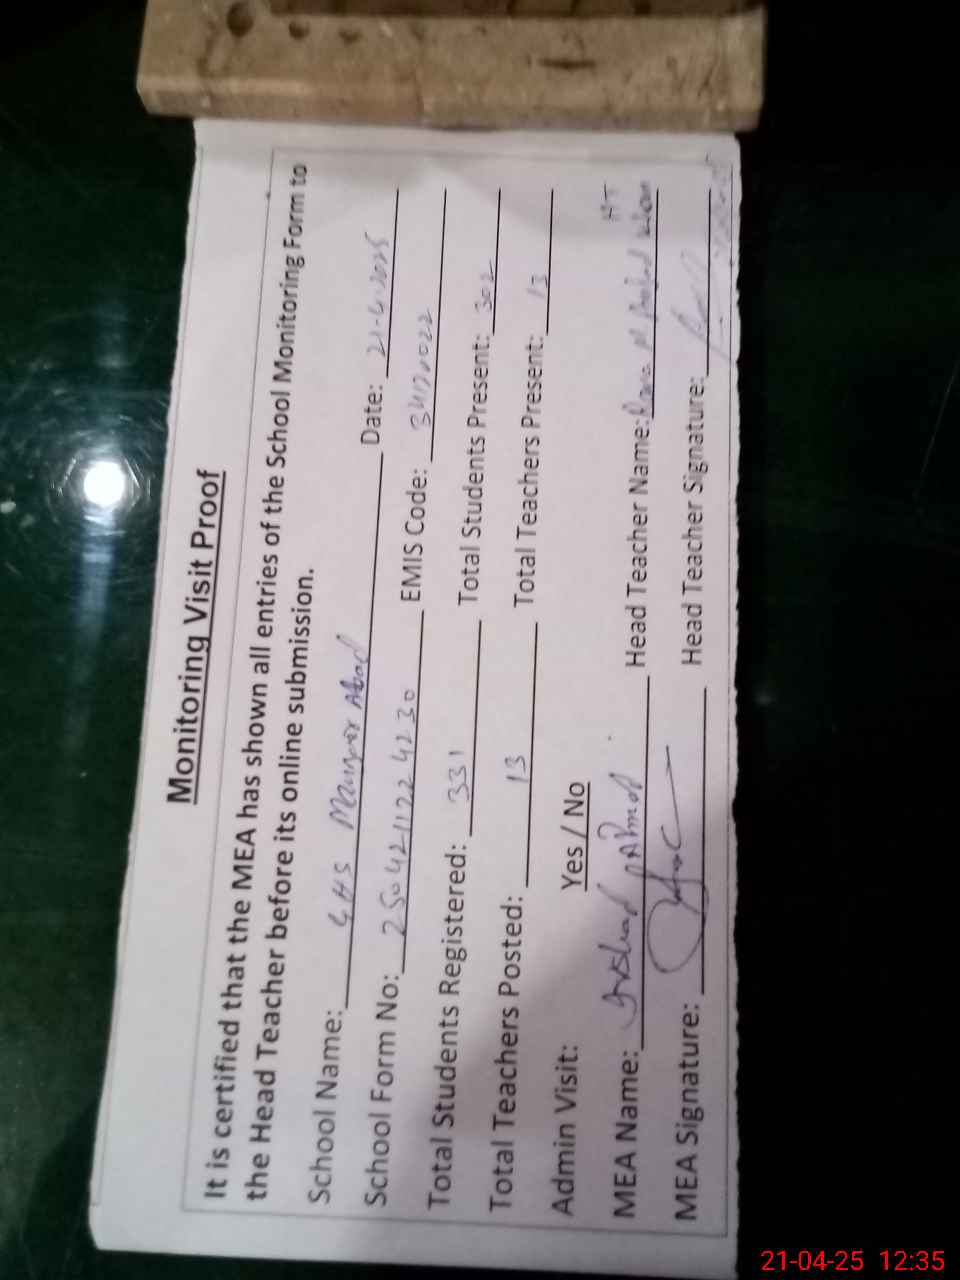 Monitoring Visit Proof
It is certified that the MEA has shown all entries of the School Monitoring Form to
the Head Teacher before its online submission.
School Name: GHS Manzoor Abad Date: 21-4-2025
School Form No: 2504211224230 EMIS Code:
Total Students Registered: 331 Total Students Present: 302
Total Teachers Posted: 13 Total Teachers Present: 13
Admin Visit: Yes / No
MEA Name: Arshad Ahmad Head Teacher Name: HT
MEA Signature: Head Teacher Signature:
21-04-25 12:35